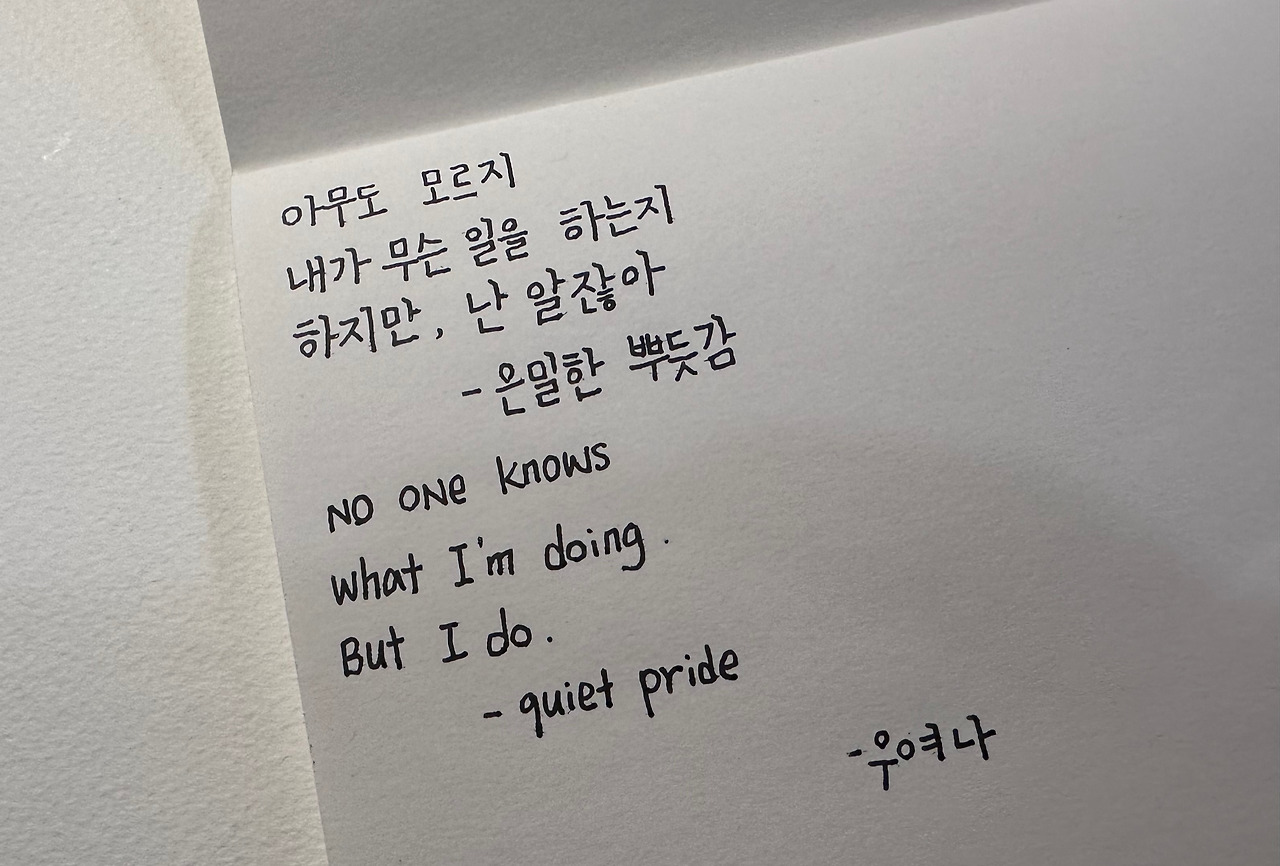 아무도 모르지
내가 무슨 일을 하는지
하지만, 난 알잖아
- 은밀한 뿌듯감
NO ONE knows
what I'm doing.
But I do.
- quiet pride